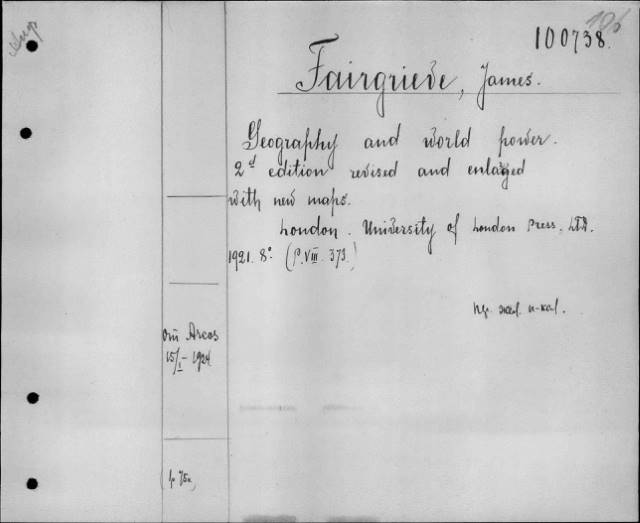 100738.
Fairgrieve, James.
Geography and world power.
2d edition revised and enlarged
with new maps.
London. University of London Press, LTD.
1921. 8° (p. VIII. 373.)
15/I - 1924